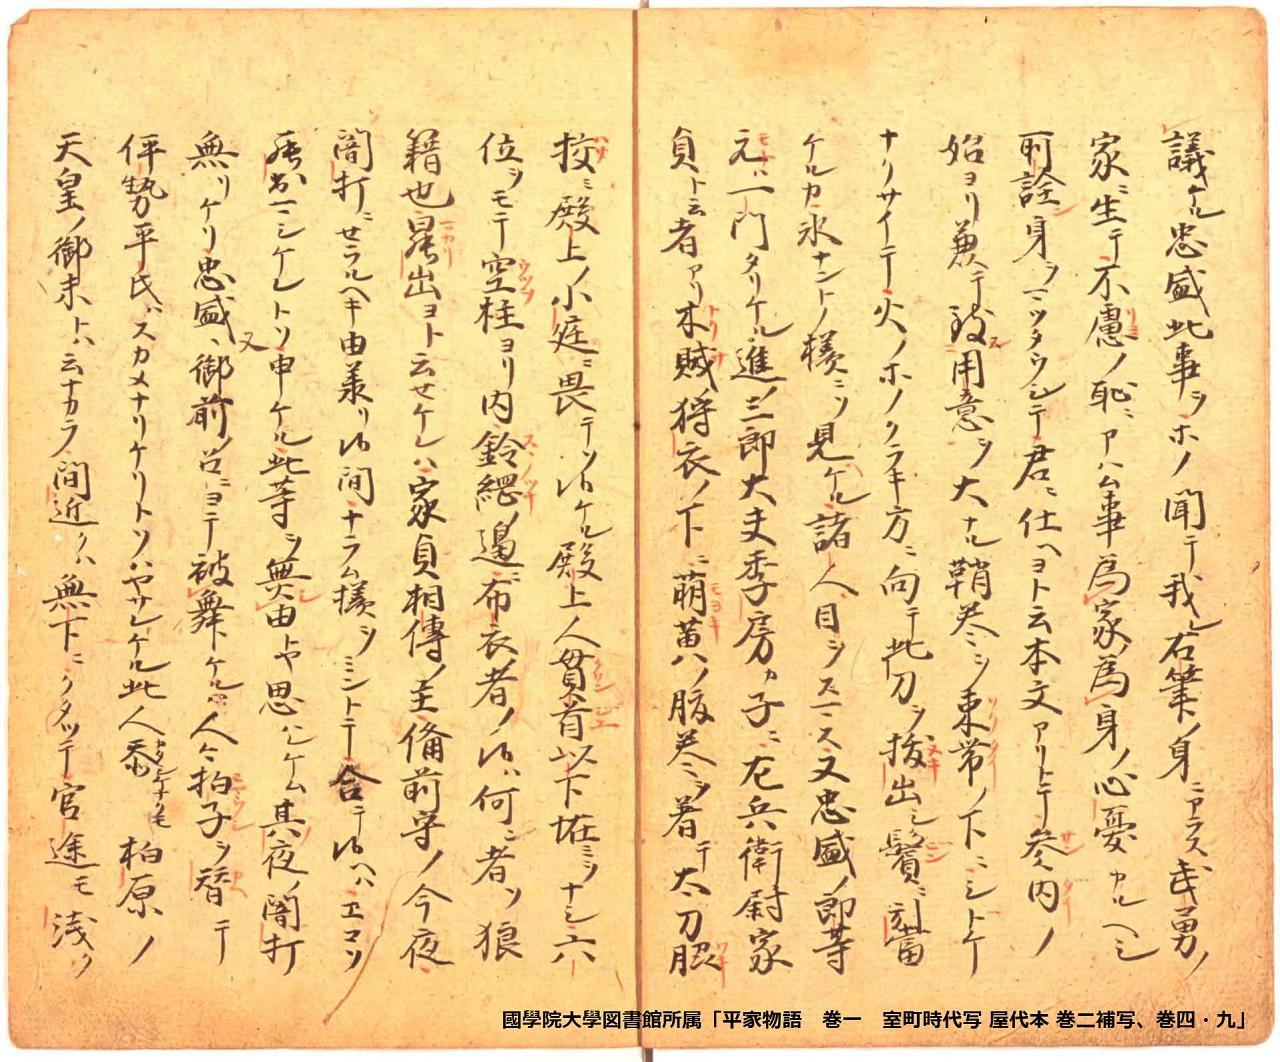 議ケル忠盛此事ヲホノ聞テ我レ右筆ノ身ニアラス武勇ノ
家ニ生テ不慮ノ恥ニアハム事為家為身ノ心憂カルヘシ
所詮身ヲマツタウシテ君ニ仕ヘヨト云本文アリトテ参内ノ
始ヨリ兼テ致用意ヲ大ナル鞘巻ヲ束帯ノ下ニシトケ
ナリサイテ火ノホノクラキ方ニ向テ此刀ヲ抜出シ鬢ニ引当
ケルカ氷ナントノ様ニソ見ケル諸人目ヲスマス又忠盛ノ郎等
元ハ一門タリケル進ノ三郎大夫季房カ子ニ左兵衛尉家
貞ト云者アリ木賊狩衣ノ下ニ萌黄ノ腹巻ヲ着テ太刀脇
挍ミ殿上ノ小庭ニ畏テソ候ケル殿上人貫首以下恠ミヲナシ六
位ヲモテ空柱ヨリ内鈴縄ノ邊ニ布衣者ノ候ハ何者ソ狼
籍也罷出ヨト云セケレハ家貞相傳ノ主備前守ノ今夜
闇打ニせラルヘキ由承リ候間ナラム様ヲミントテ合テ候ヘハエコソ
罷出マシケレトソ申ケル此等ヲ無由トや思ハレケム其夜ノ闇打
無リケリ忠盛又御前ノ召ニヨテ被舞ケルニ人々拍子ヲ替テ
伻勢平氏ハスカメナリケリトソハヤサレケル此人忝 柏原ノ
天皇ノ御末トハ云ナカラ間近クハ無下ニクタツテ官途モ浅ク
國學院大學図書館所属「平家物語　巻一　室町時代写 屋代本 巻二補写、巻四・九」